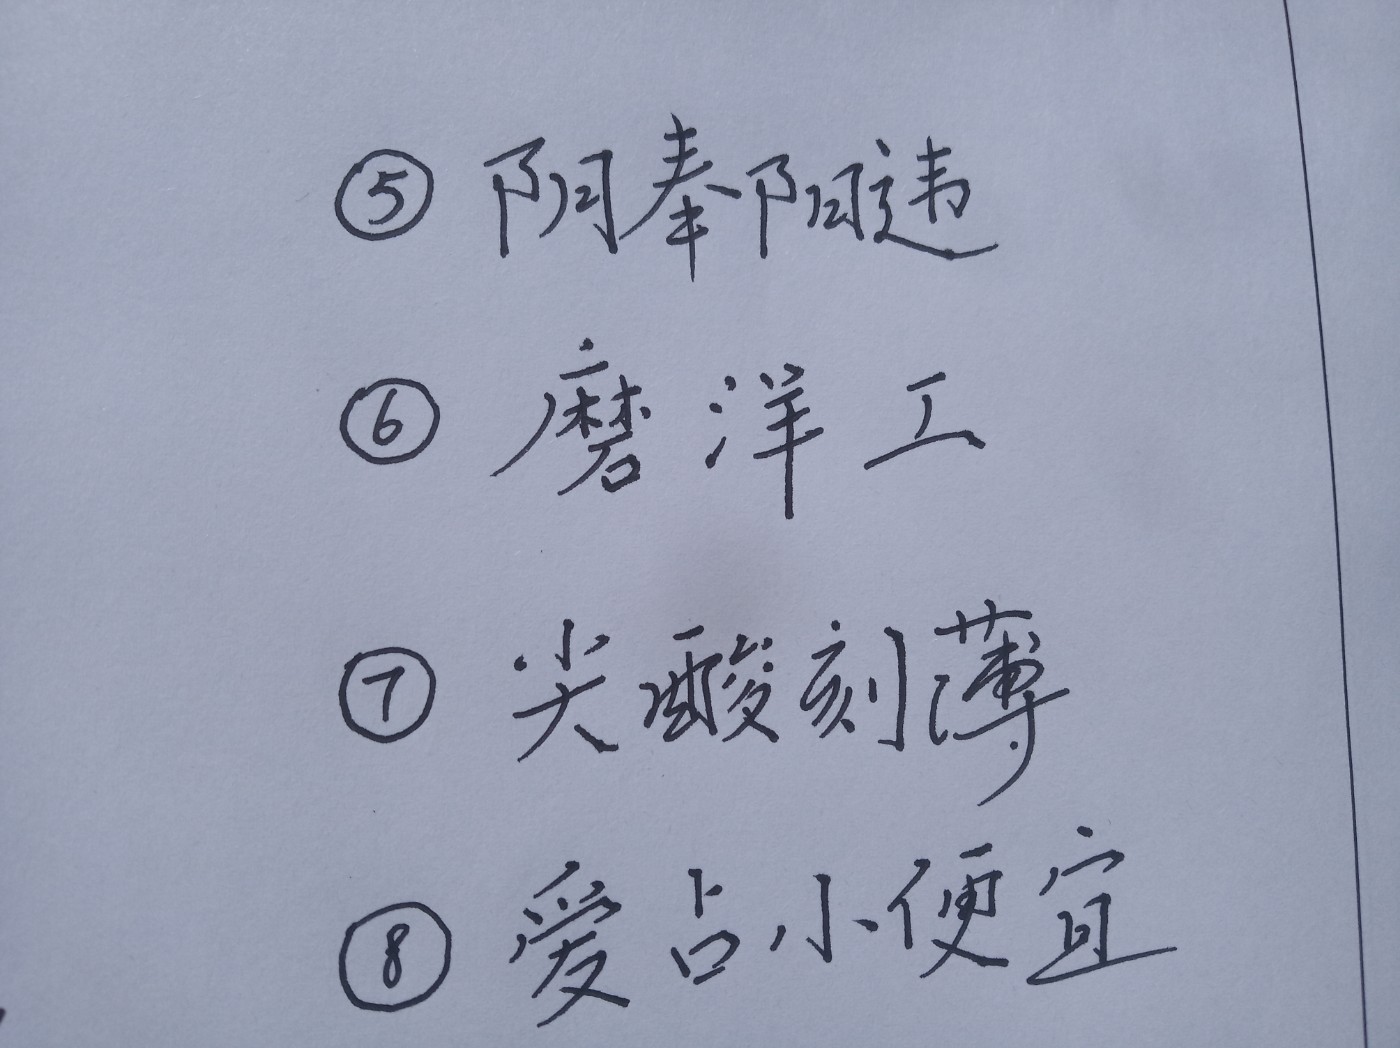 ⑤ 阴奉阳违
⑥ 磨洋工
⑦ 尖酸刻薄
⑧ 爱占小便宜